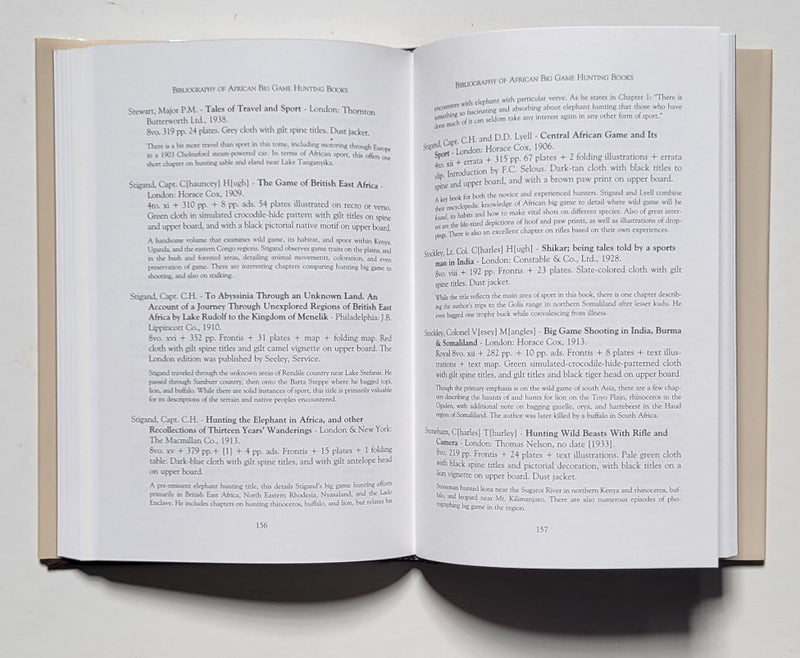 BIBLIOGRAPHY OF AFRICAN BIG GAME HUNTING BOOKS
Stewart, Major P.M. - Tales of Travel and Sport - London: Thornton
Butterworth Ltd., 1938.
8vo. 319 pp. 24 plates. Grey cloth with gilt spine titles. Dust jacket.
There is a bit more travel than sport in this tome, including motoring through Europe
in a 1903 Chelmsford steam-powered car. In terms of African sport, this offers one
short chapter on hunting sable and eland near Lake Tanganyika.
Stigand, Capt. C[hauncey] H[ugh] - The Game of British East Africa -
London: Horace Cox, 1909.
4to. xi + 310 pp. + 8 pp. ads. 54 plates illustrated on recto or verso.
Green cloth in simulated crocodile-hide pattern with gilt titles on spine
and upper board, and with a black pictorial native motif on upper board.
A handsome volume that examines wild game, its habitat, and spoor within Kenya,
Uganda, and the eastern Congo regions. Stigand observes game traits on the plains, and
in the bush and forested areas, detailing animal movements, coloration, and even
preservation of game. There are interesting chapters comparing hunting big game to
shooting, and also on stalking.
Stigand, Capt. C.H. - To Abyssinia Through an Unknown Land. An
Account of a Journey Through Unexplored Regions of British East
Africa by Lake Rudolf to the Kingdom of Menelik - Philadelphia: J.B.
Lippincott Co., 1910.
8vo. xvi + 352 pp. Frontis + 31 plates + map + folding map. Red
cloth with gilt spine titles and gilt camel vignette on upper board. The
London edition was published by Seeley, Service.
Stigand traveled through the unknown areas of Rendile country near Lake Stefanie. He
passed through Samburr country, then onto the Barta Steppe where he bagged topi,
lion, and buffalo. While there are solid instances of sport, this title is primarily valuable
for its descriptions of the terrain and native peoples encountered.
Stigand, Capt. C.H. - Hunting the Elephant in Africa, and other
Recollections of Thirteen Years' Wanderings - London & New York:
The Macmillan Co., 1913.
8vo. xv + 379 pp.+ [1] + 4 pp. ads. Frontis + 15 plates + 1 folding
table. Dark-blue cloth with gilt spine titles, and with gilt antelope head
on upper board.
A pre-eminent elephant hunting title, this details Stigand's big game hunting efforts
primarily in British East Africa, North Eastern Rhodesia, Nyasaland, and the Lado
Enclave. He includes chapters on hunting rhinoceros, buffalo, and lion, but relates his
156
BIBLIOGRAPHY OF AFRICAN BIG GAME HUNTING BOOKS
encounters with elephant with particular verve. As he states in Chapter 1: "There is
something so fascinating and absorbing about elephant hunting that those who have
done much of it can seldom take any interest again in any other form of sport."
Stigand, Capt. C.H. and D.D. Lyell - Central African Game and Its
Spoor - London: Horace Cox, 1906.
4to. xii + errata + 315 pp. 67 plates + 2 folding illustrations + errata
slip. Introduction by F.C. Selous. Dark-tan cloth with black titles to
spine and upper board, and with a brown paw print on upper board.
A key book for both the novice and experienced hunters. Stigand and Lyell combine
their encyclopedic knowledge of African big game to detail where wild game will be
found, its habits and how to make vital shots on different species. Also of great inter-
est are the life-sized depictions of hoof and paw prints, as well as illustrations of drop-
pings. There is also an excellent chapter on titles based on their own experiences.
Stockley, Lt. Col. C[harles] H[ugh] - Shikar; being tales told by a sports
man in India - London: Constable & Co., Ltd., 1928.
8vo. viii + 192 pp. Frontis + 23 plates. Slate-colored cloth with gilt
spine titles. Dust jacket.
While the title reflects the main area of sport in this book, there is one chapter describ-
ing the author's trips to the Golis range in northern Somaliland after lesser kudu. He
even bagged one trophy buck while convalescing from illness.
Stockley, Colonel V[esey] M[angles] - Big Game Shooting in India, Burma
& Somaliland - London: Horace Cox, 1913.
Royal 8vo. xii + 282 pp. + 10 pp. ads. Frontis + 8 plates + text illus-
trations + text map. Green simulated-crocodile-hide-patterned cloth
with gilt spine titles, and gilt titles and black tiger head on upper board.
Though the primary emphasis is on the wild game of south Asia, there are a few chap-
ters describing the haunts of and hunts for lion on the Toyo Plain, rhinoceros in the
Ogaden, with additional note on bagging gazelle, oryx, and hartebeest in the Haud
region of Somaliland. The author was later killed by a buffalo in South Africa.
Stoneham, C[harles] T[hurley] - Hunting Wild Beasts With Rifle and
Camera - London: Thomas Nelson, no date [1933].
8vo. 219 pp. Frontis + 24 plates + text illustrations. Pale green cloth
with black spine titles and pictorial decoration, with black titles on a
lion vignette on upper board. Dust jacket.
Stoneman hunted lions near the Sugaroi River in northern Kenya and rhinoceros, buf-
falo, and leopard near Mt. Kilimanjaro. There are also numerous episodes of pho-
tographing big game in the region.
157